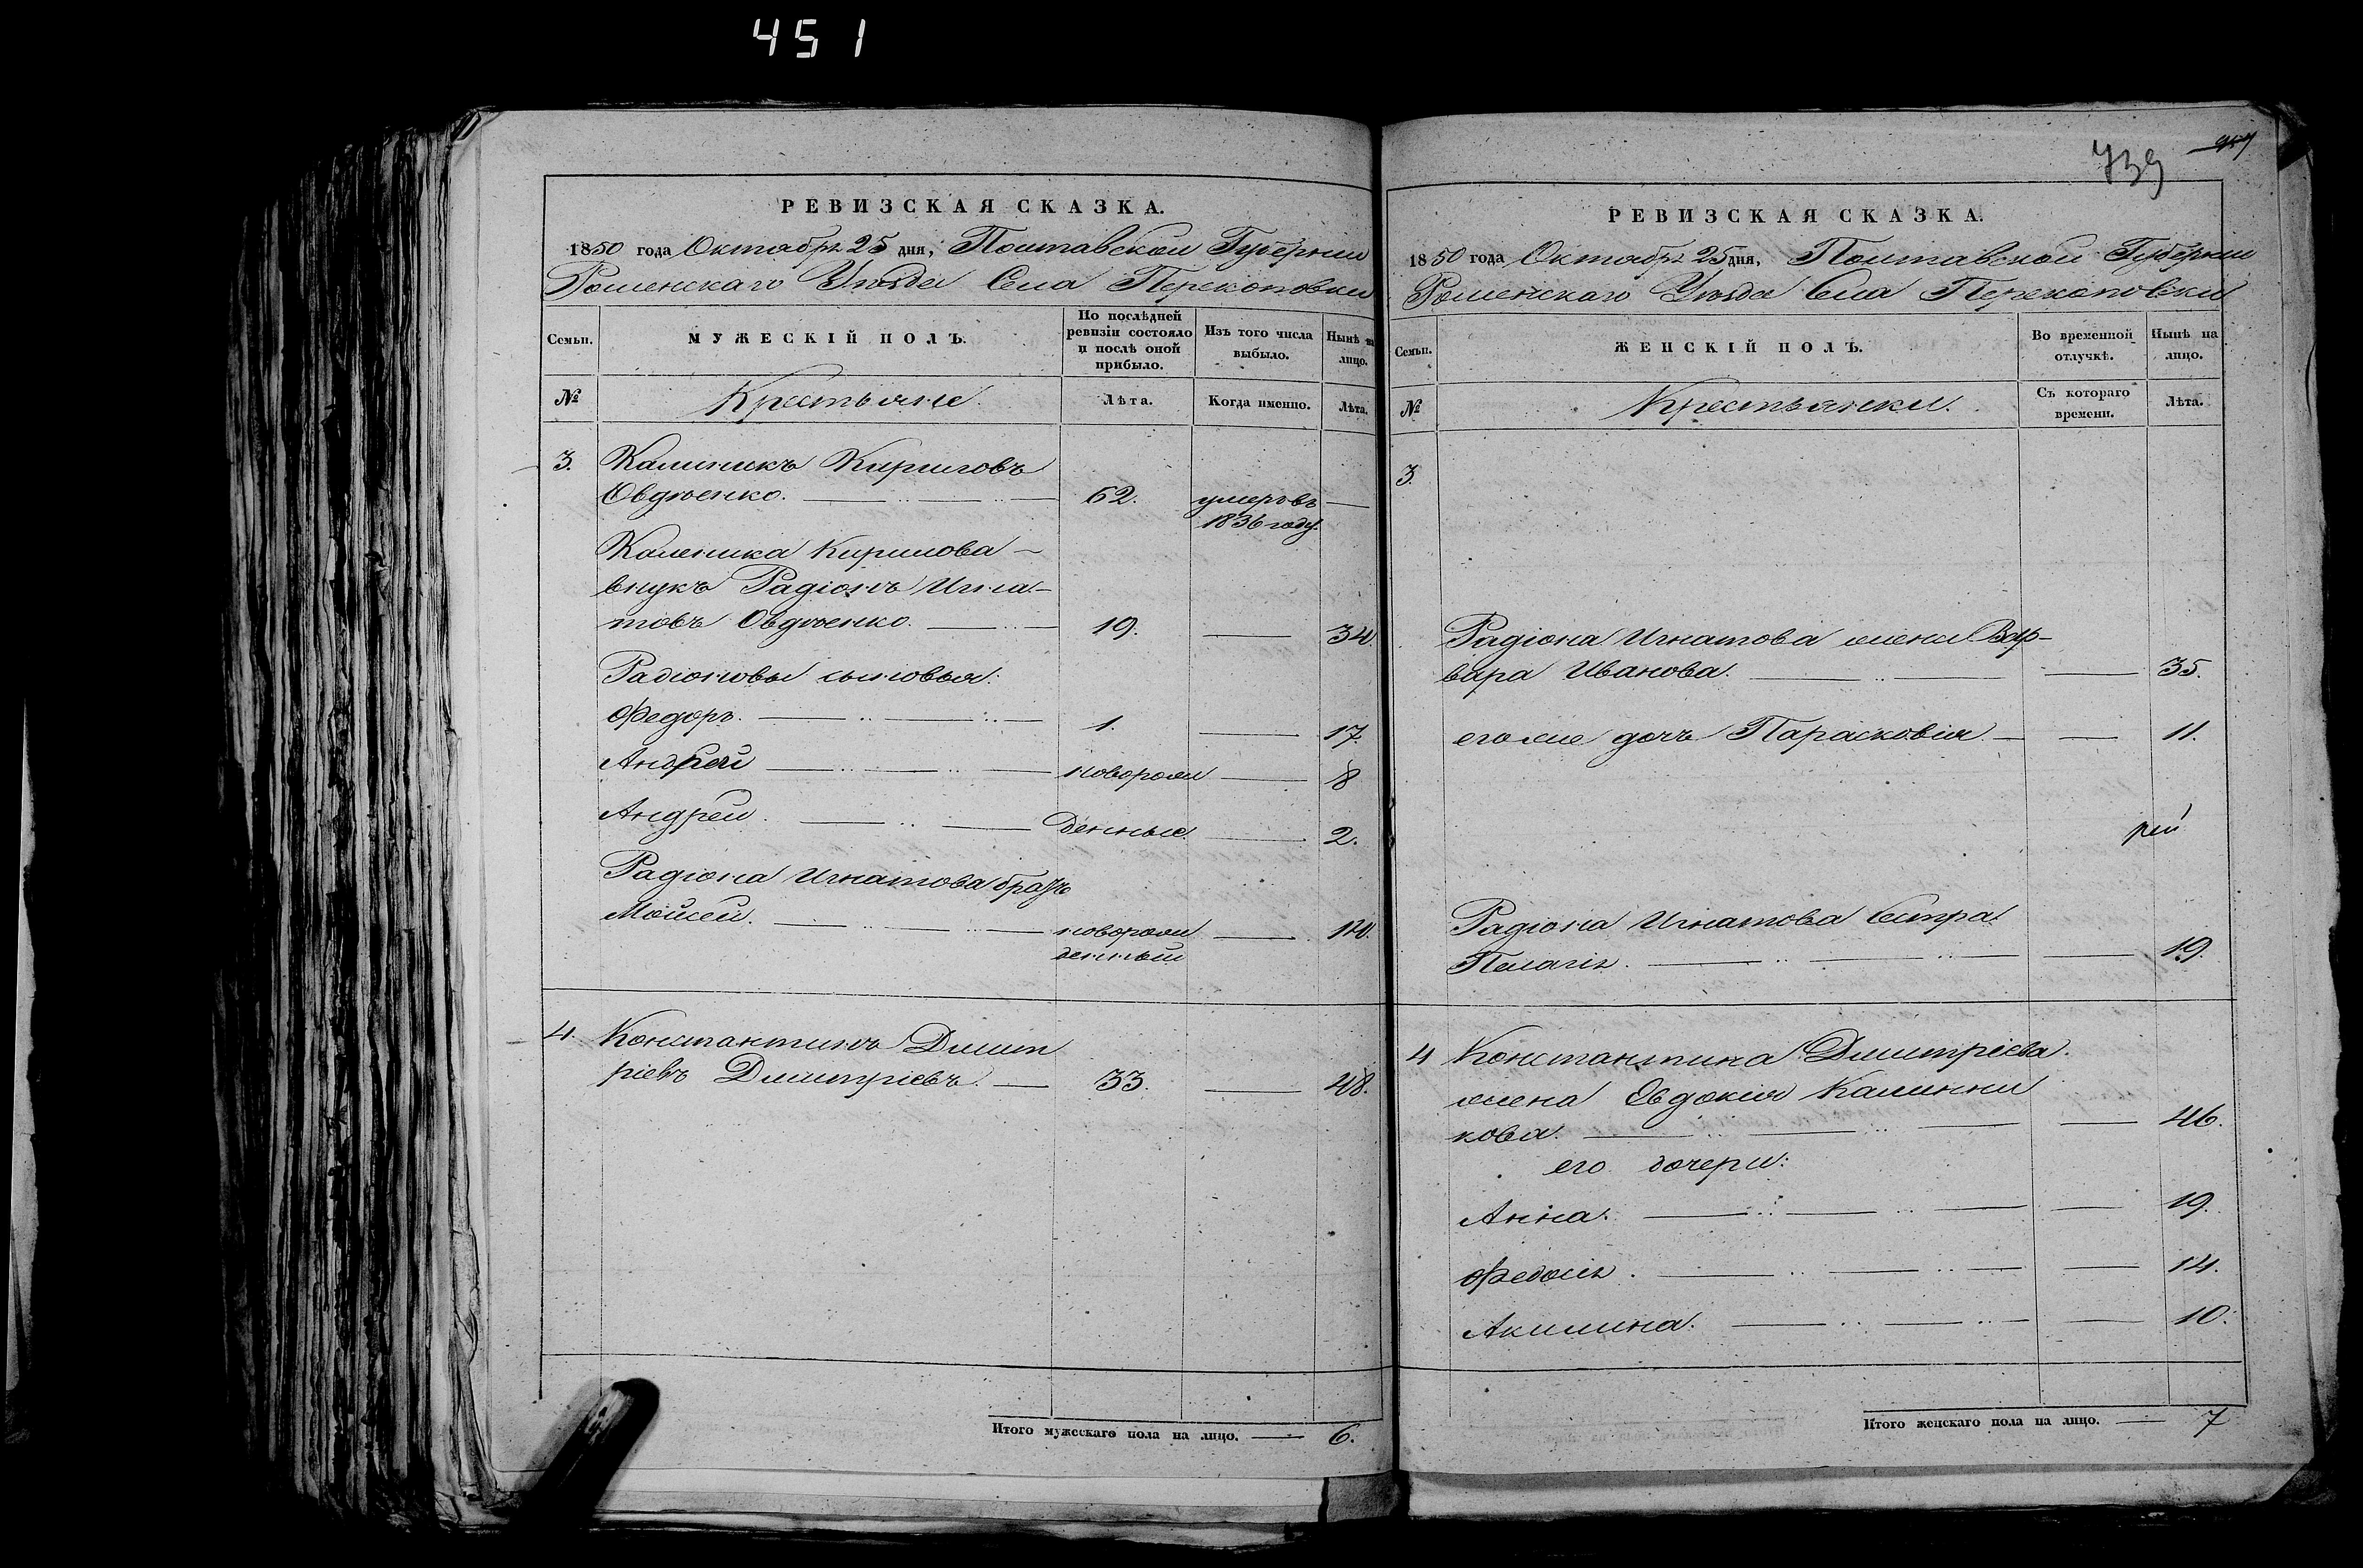 451
РЕВИЗСКАЯ СКАЗКА.
1850 года Октября 25 дня, Полтавской Губернии
Роменскаго Уѣзда Села Перекоповки
Семьи.
МУЖЕСКІЙ ПОЛЪ.
По послѣдней ревизіи состояло и послѣ оной прибыло.
Изъ того числа выбыло.
Нынѣ на лицо.
№
Крестьяне.
Лѣта.
Когда именно.
Лѣта.
3. Калиникъ Кириловъ
Овдѣенко. 62. умеръ въ
1836 году.
Калиника Кирилова
внукъ Радіонъ Игна-
товъ Овдѣенко. 19. 34.
Радіоновы сыновья:
Федоръ. 1. 17.
Андрей новорож 8
Андрей. денные. 2.
Радіона Игнатова братъ
Мойсей. новорож 14.
денный
4. Константинъ Дмит
ріевъ Дмитріевъ. 33. 48.
Итого мужескаго пола на лицо. 6.
739
РЕВИЗСКАЯ СКАЗКА.
1850 года Октября 25 дня, Полтавской Губерніи
Роменскаго Уѣзда Села Перекоповки
Семьи.
ЖЕНСКІЙ ПОЛЪ.
Во временной отлучкѣ.
Нынѣ на лицо.
№
Крестьянки.
Съ котораго времени.
Лѣта.
3.
Радіона Игнатова жена Вар-
вара Иванова. 35.
его же дочь Парасковія 11.
рей
Радіона Игнатова сестра
Пелагія. 19.
4 Константина Дмитріева
жена Евдокія Калинни
кова. 46.
его дочери:
Анна. 19.
Федосія. 14.
Акилина. 10.
Итого женскаго пола на лицо. 7